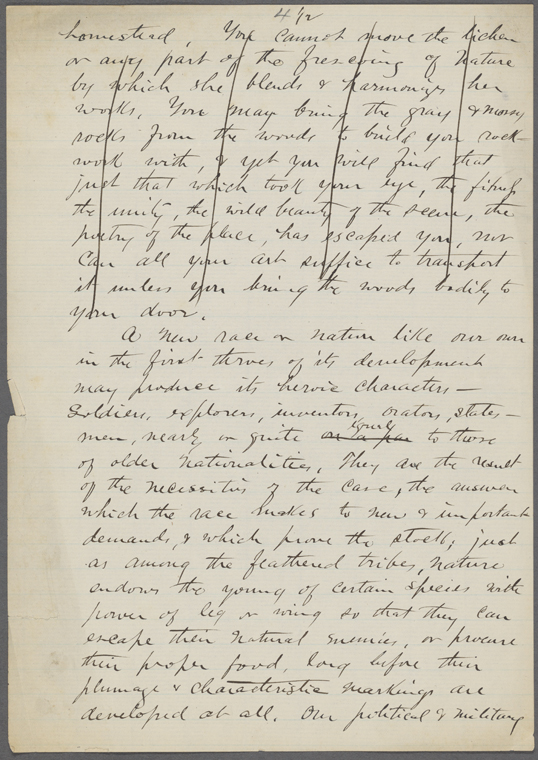 4 1/2
homestead. You cannot move the lichen
or any part of the frescoing of Nature
by which she blends & harmonizes her
works. You may bring the gray & mossy
rocks from the woods to build your rock-
work with, & yet you will find that
just that which took your eye, the fitness
the unity, the wild beauty of the scene, the
poetry of the place, has escaped you, nor
can all your art suffice to transport
it unless you bring the woods bodily to
your door.
A new race or nation like our own
in the first throes of its development
may produce its heroic characters—
Soldiers, explorers, inventors, orators, states-
men, nearly or quite on a par equal to those
of older nationalities. They are the result
of the necessities of the case, the answer
which the race makes to new & important
demands, & which prove the stock; just
as among the feathered tribes, nature
endows the young of certain species with
power of leg or wing so that they can
escape their natural enemies, or procure
their proper food, long before their
plumage & characteristic markings are
developed at all. Our political & military